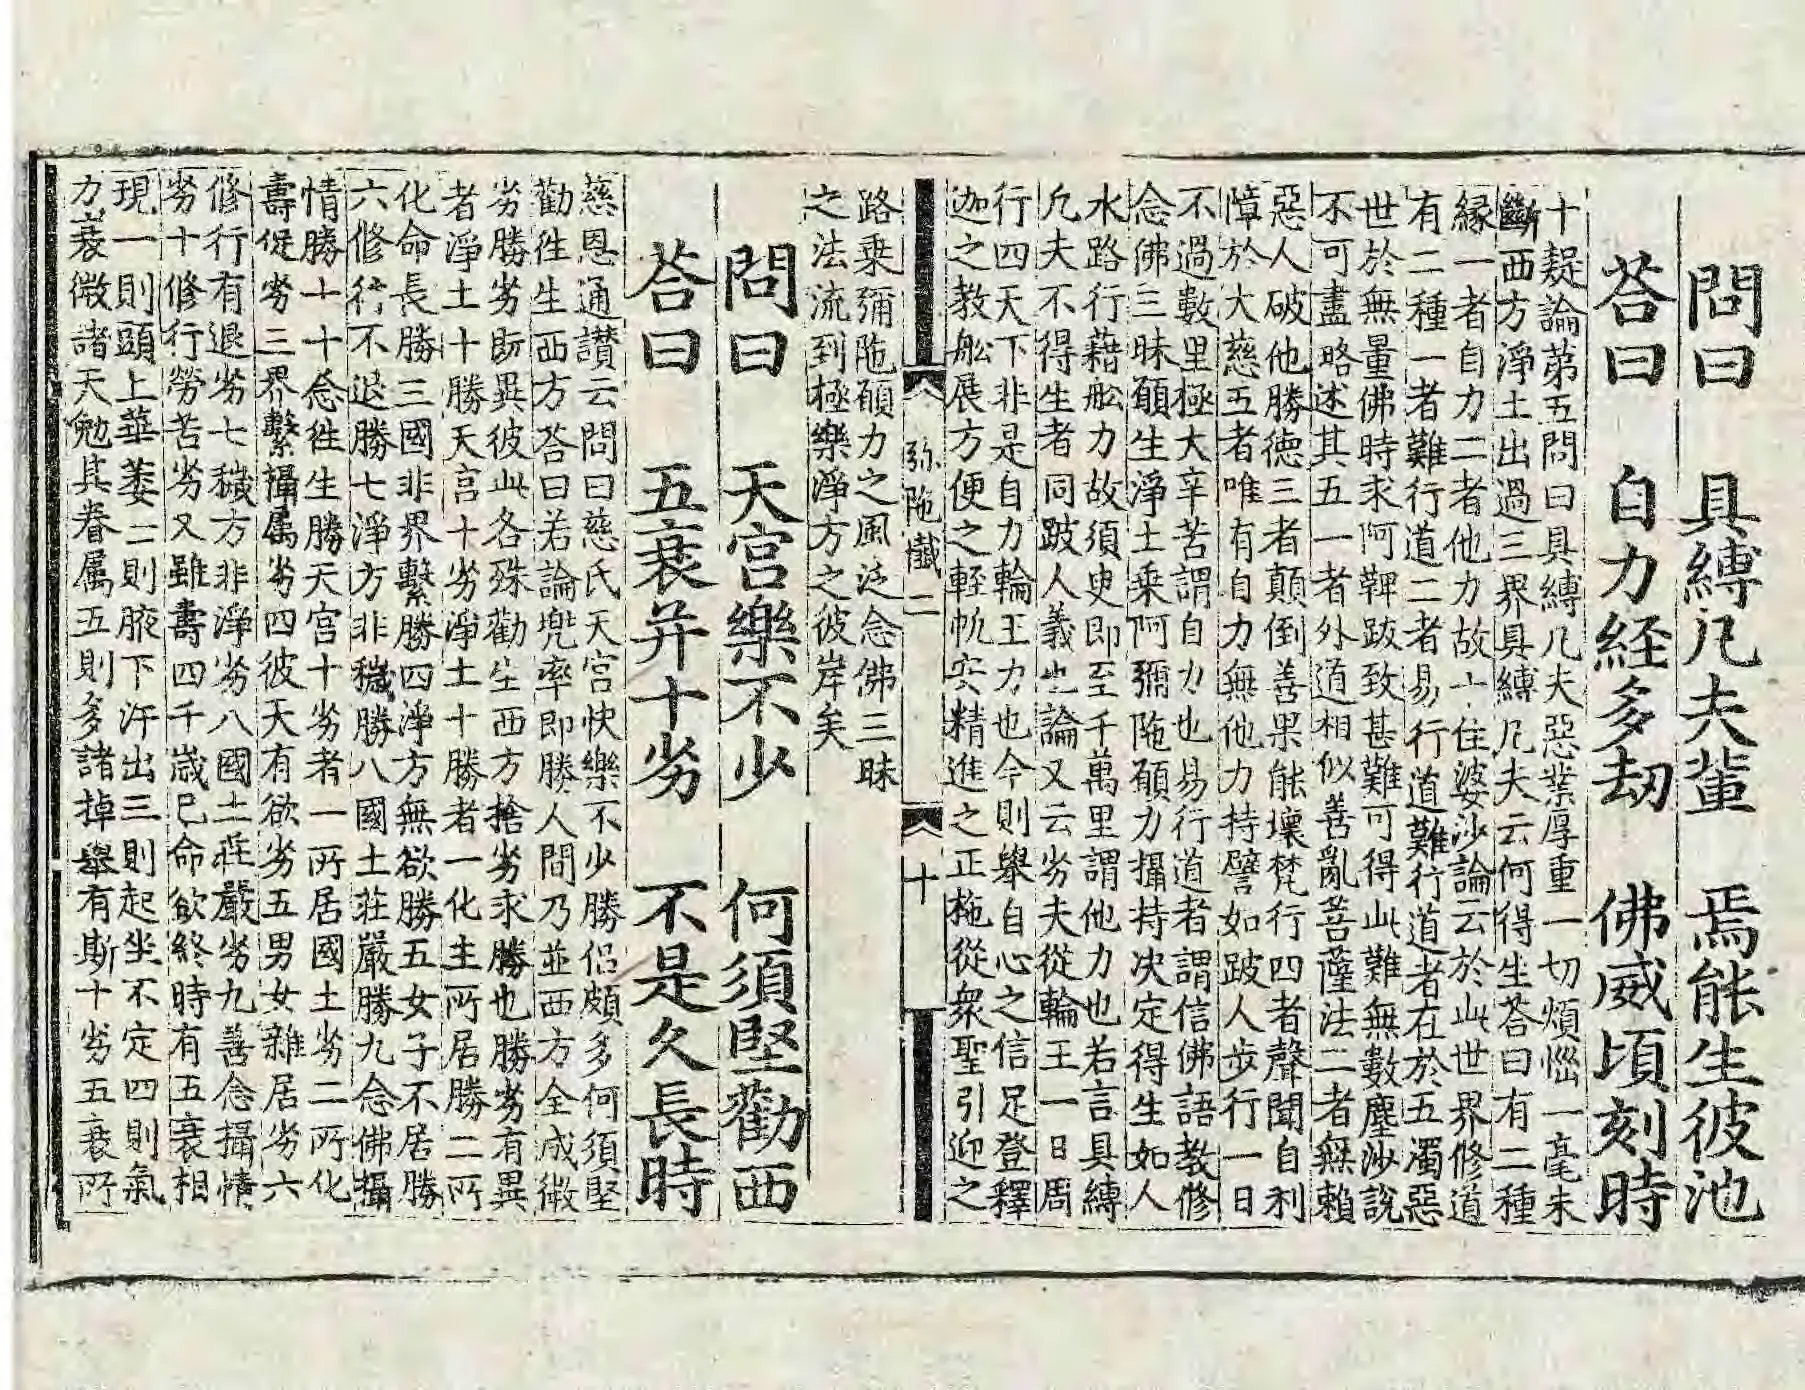 問曰 具縛凢夫輩 焉能生彼池
荅曰 自力経多劫 佛威頃刻時
十疑論苐五問曰具縛凢夫惡業厚重一切煩惱一毫未
斷西方淨土出過三界具縛凢夫云何得生荅曰有二種
縁一者自力二者他力故十住婆沙論云於此世界修道
有二種一者難行道二者易行道難行道者在於五濁惡
世於無量佛時求阿鞞跋致甚難可得此難無數塵沙說
不可盡略述其五一者外道相似善亂菩薩法二者無賴
惡人破他勝徳三者顛倒善果能壞梵行四者聲聞自利
障於大慈五者唯有自力無他力持譬如跛人步行一日
不過數里極大辛苦謂自力也易行道者謂信佛語教修
念佛三昧願生淨土乗阿彌陁願力攝持决定得生如人
水路行藉舩力故須㬰即至千萬里謂他力也若言具縛
凢夫不得生者同跛人義也論又云劣夫從輪王一日周
行四天下非是自力輪王力也今則舉自心之信足登釋
迦之教舩展方便之輕帆安精進之正柂從衆聖引迎之
弥陁懺二 十
路乗彌陁願力之風泛念佛三昧
之法流到極樂淨方之彼岸矣
問曰 天宮樂不少 何須堅勸西
荅曰 五衰并十劣 不是久長時
慈恩通讃云問曰慈氏天宮快樂不少勝侶頗多何須堅
勸徃生西方荅曰若論兜率即勝人間乃並西方全成微
劣勝劣旣異彼此各殊勸生西方捨劣求勝也勝劣有異
者淨土十勝天宮十劣淨土十勝者一化主所居勝二所
化命長勝三國非界繫勝四淨方無欲勝五女子不居勝
六修行不退勝七淨方非穢勝八國土莊嚴勝九念佛攝
情勝十十念徃生勝天宮十劣者一所居國土劣二所化
壽促劣三界繫攝属劣四彼天有欲劣五男女雜居劣六
修行有退劣七穢方非淨劣八國土莊嚴劣九善念攝情
劣十修行勞苦劣又雖壽四千歳已命欲終時有五衰相
現一則頭上華萎二則腋下汗出三則起坐不定四則氣
力衰微諸天勉其眷属五則多諸掉舉有斯十劣五衰所